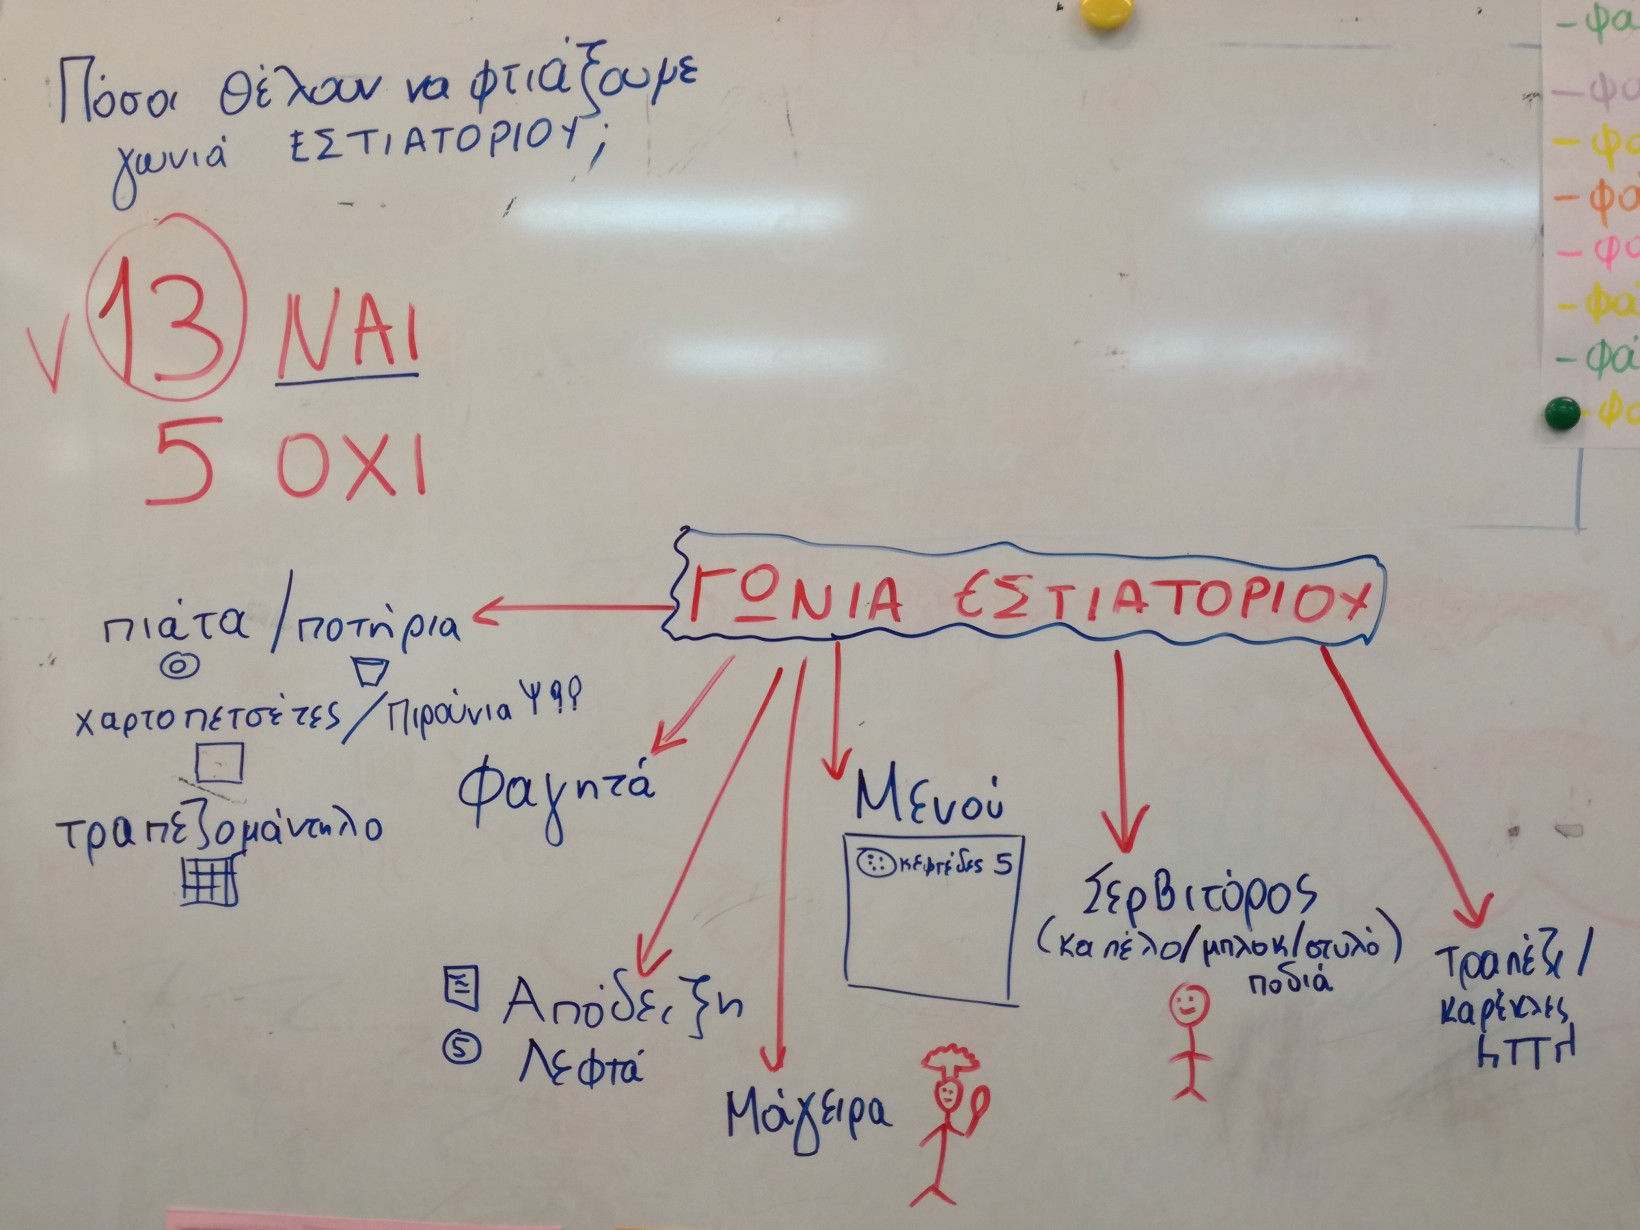 Πόσοι θέλουν να φτιάξουμε
γωνιά ΕΣΤΙΑΤΟΡΙΟΥ;
13 ΝΑΙ
5 ΟΧΙ
ΓΩΝΙΑ ΕΣΤΙΑΤΟΡΙΟΥ
πιάτα / ποτήρια
χαρτοπετσέτες / πιρούνια
τραπεζομάντηλο
Φαγητά
Απόδειξη
5 Λεφτά
Μάγειρα
Μενού
κεφτέδες 5
Σερβιτόρος
(καπέλο/μπλοκ/στυλό)
ποδιά
Τραπέζι/
καρέκλες
- φα
- φα
- φα
- φα
- φα
- φα
- φά
- φα